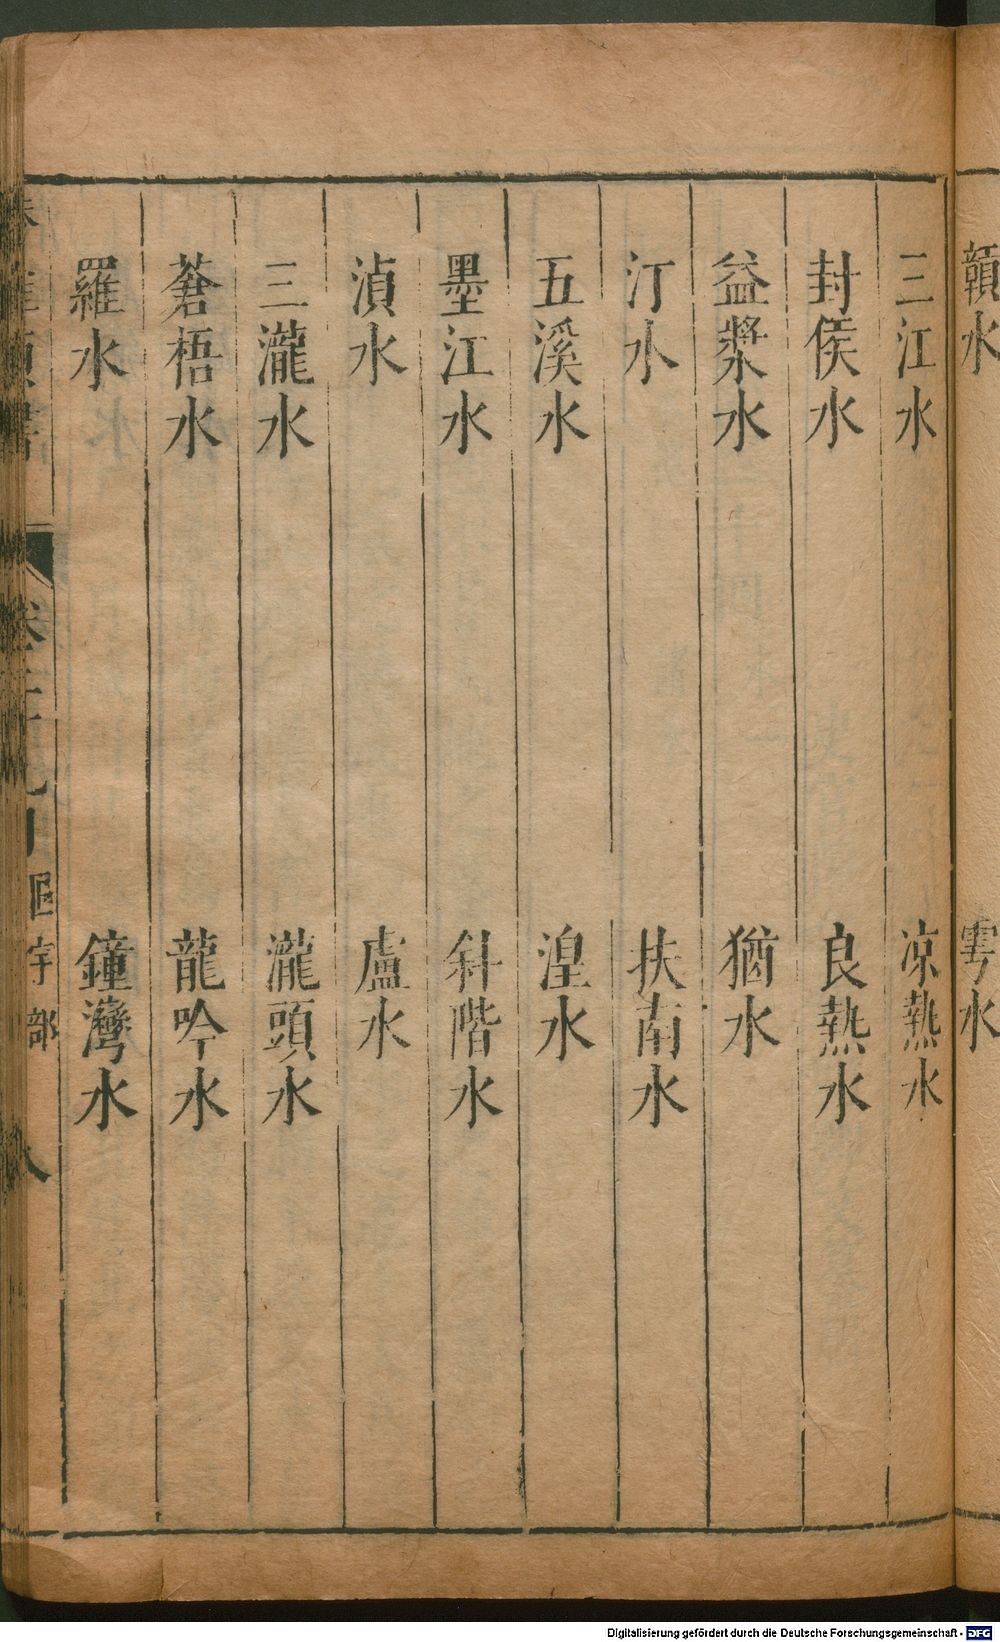 贛水
雩水
三江水
凉熱水
封侯水
良熱水
益漿水
猶水
汀水
扶南水
五溪水
湟水
墨江水
斜階水
湞水
盧水
三瀧水
瀧頭水
蒼梧水
龍吟水
羅水
鐘灣水
宇部
八
Digitalisierung gefördert durch die Deutsche Forschungsgemeinschaft - DFG